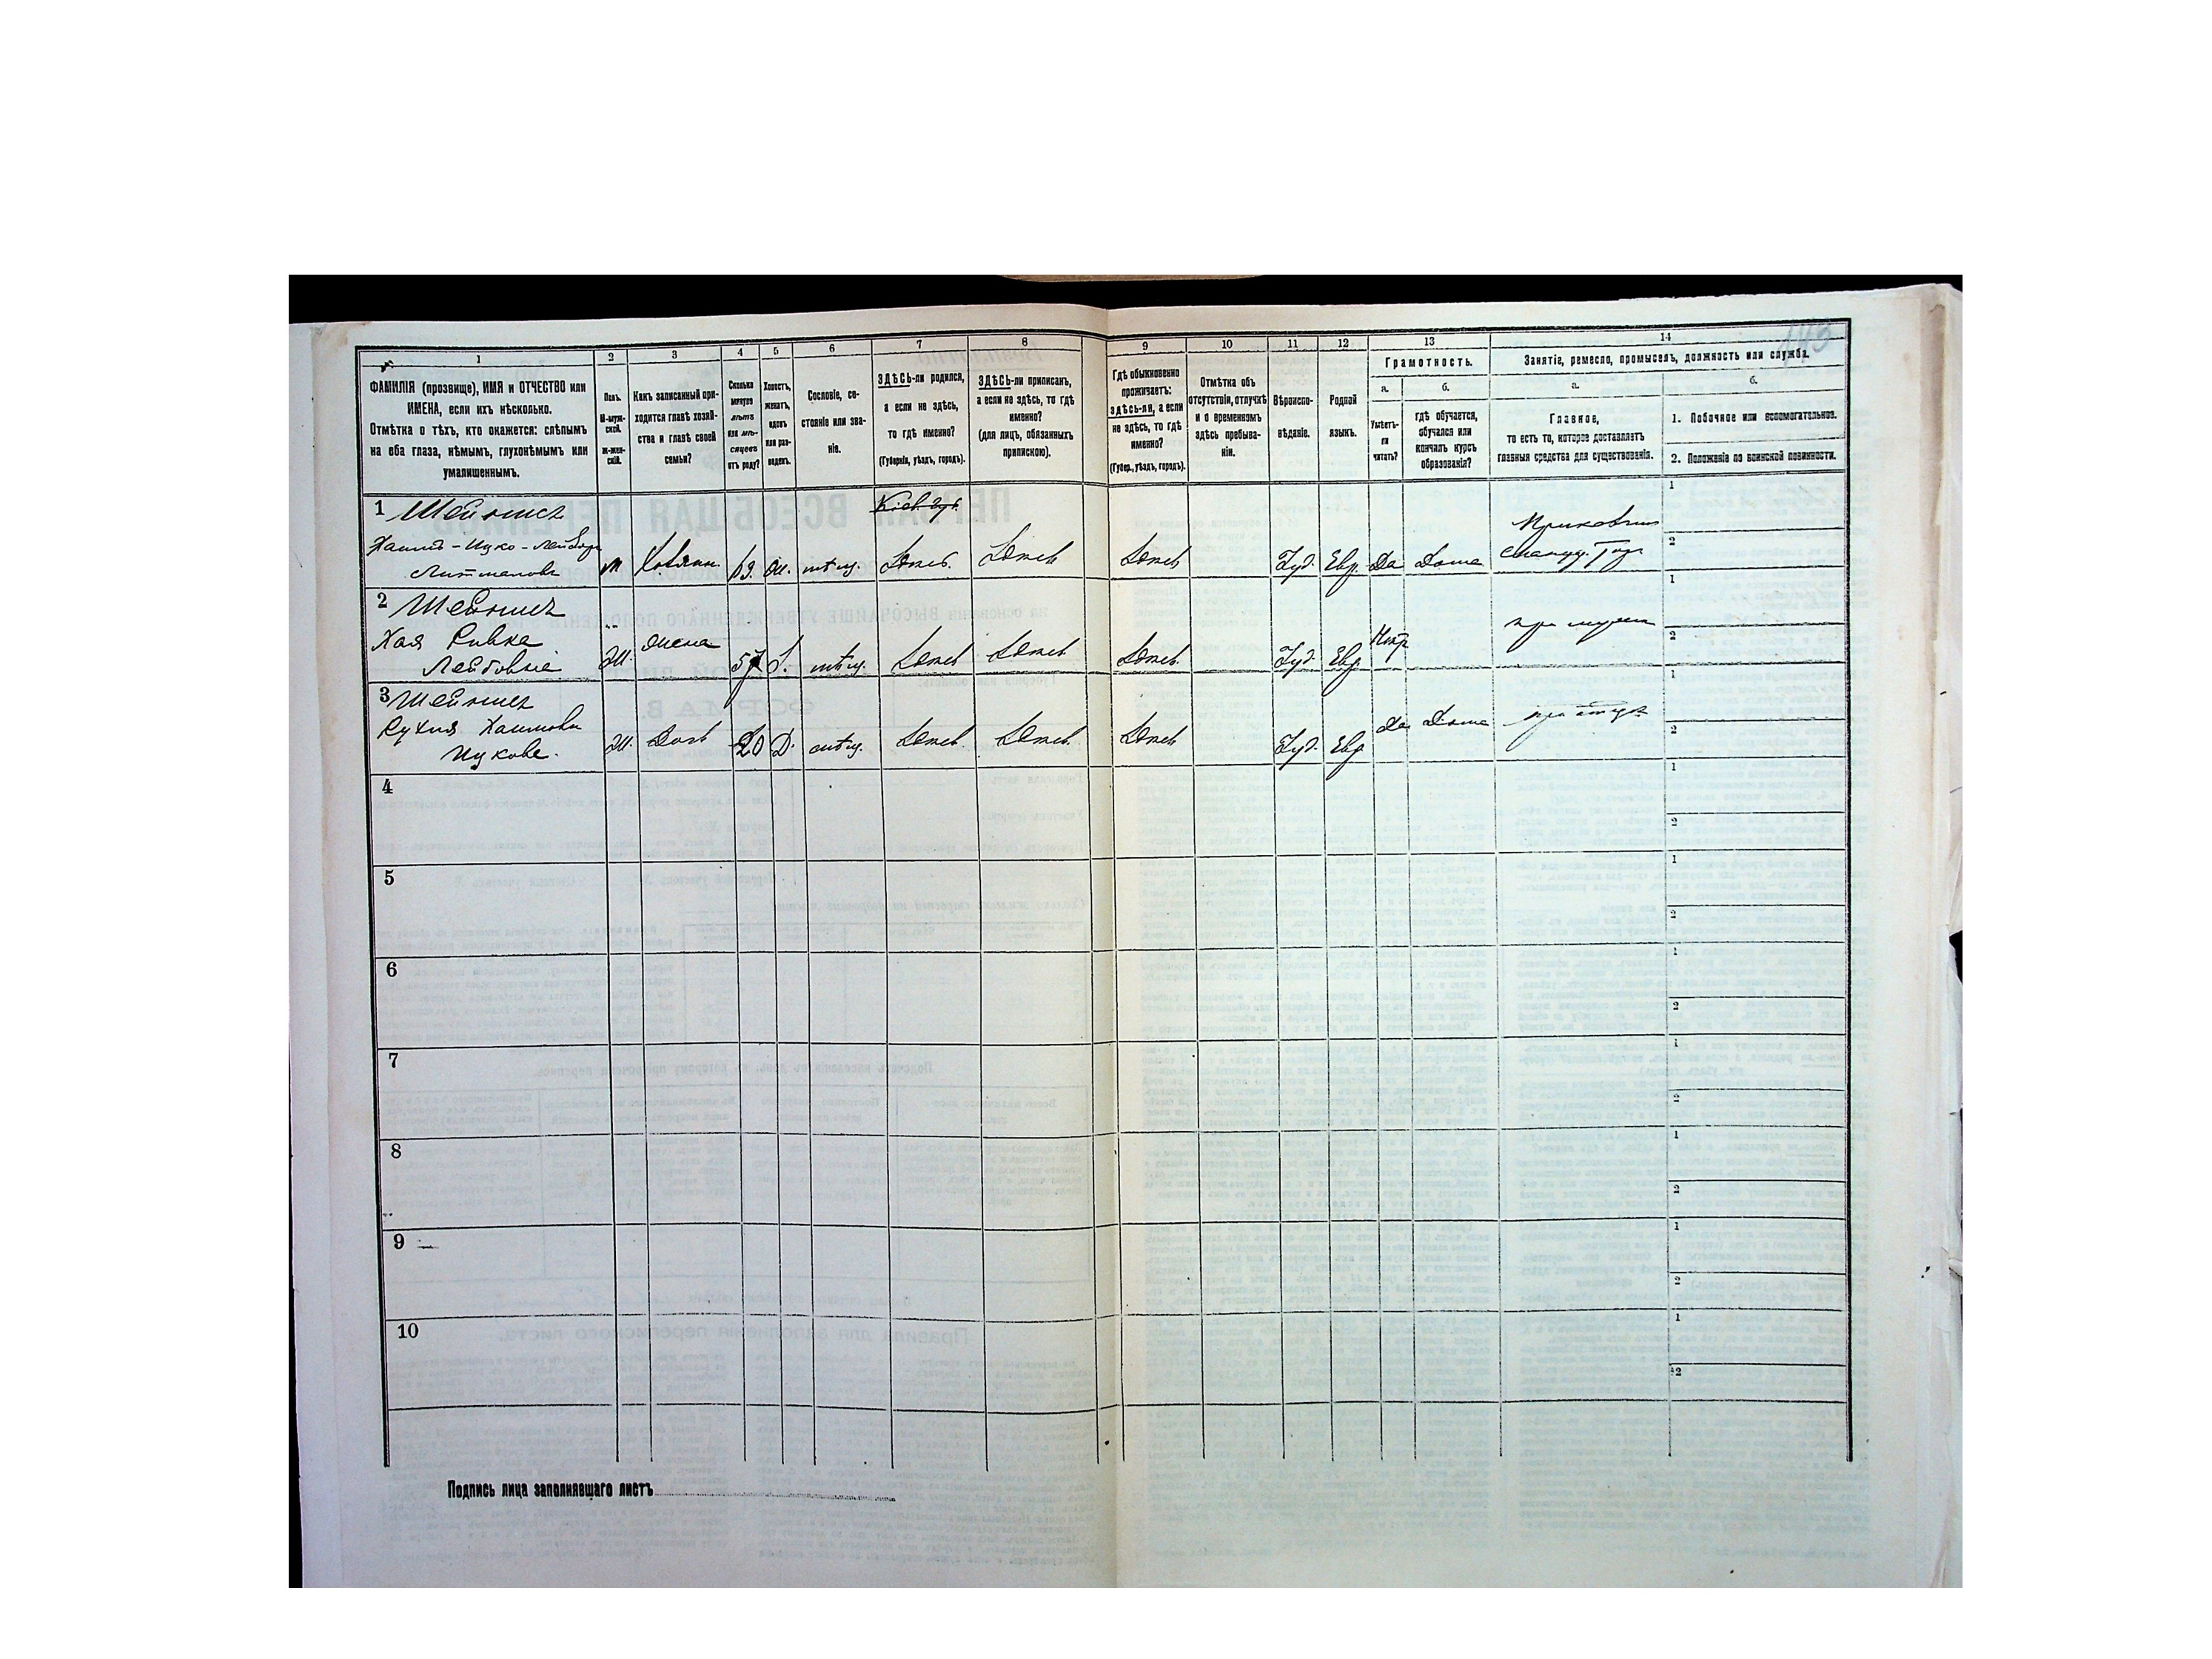 143
1
ФАМИЛІЯ (прозвище), ИМЯ и ОТЧЕСТВО или
ИМЕНА, если ихъ нѣсколько.
Отмѣтка о тѣхъ, кто окажется: слѣпымъ
на оба глаза, нѣмымъ, глухонѣмымъ или
умалишеннымъ.
2
Полъ.
М-муж-
ской.
ж-жен-
скій.
3
Какъ записанный при-
ходится главѣ хозяй-
ства и главѣ своей
семьи?
4
Сколько
минуло
лѣтъ
или мѣ-
сяцевъ
отъ роду?
5
Холостъ,
женатъ,
вдовъ
или раз-
веденъ.
6
Сословіе, со-
стояніе или зва-
ніе.
7
ЗДѢСЬ-ли родился,
а если не здѣсь,
то гдѣ именно?
(Губернія, уѣздъ, городъ).
8
ЗДѢСЬ-ли приписанъ,
а если не здѣсь, то гдѣ
именно?
(для лицъ, обязанныхъ
припискою).
9
Гдѣ обыкновенно
проживаетъ:
здѣсь-ли, а если
не здѣсь, то гдѣ
именно?
(Губер., уѣздъ, городъ).
10
Отмѣтка объ
отсутствіи, отлучкѣ
и о временномъ
здѣсь пребыва-
ніи.
11
Вѣроиспо-
вѣданіе.
12
Родной
языкъ.
13
Грамотность.
а.
Умѣетъ-
ли
читать?
б.
гдѣ обучается,
обучался или
кончилъ курсъ
образованія?
14
Занятіе, ремесло, промыселъ, должность или служба.
а.
Главное,
то есть то, которое доставляетъ
главныя средства для существованія.
б.
1. Побочное или вспомогательное.
2. Положеніе по воинской повинности.
1 Шейнисъ
Кіев. губ.
Хаимъ-Ицко-
М Хозяинъ Ж. мѣщ. Іуд. Евр. Да Дома
1
2
2 Шейнисъ
Хая Ривка
Лейбовна
Ж. жена 57 мѣщ. Іуд. Евр. при мужѣ
1
2
3 Шейнисъ
Рухля Хаимова
Ицкова
Ж. Дочь 20 Д. мѣщ. Іуд. Евр. Да Дома при отцѣ
1
2
4
1
2
5
1
2
6
1
2
7
1
2
8
1
2
9
1
2
10
1
2
Подпись лица заполнявшаго листъ